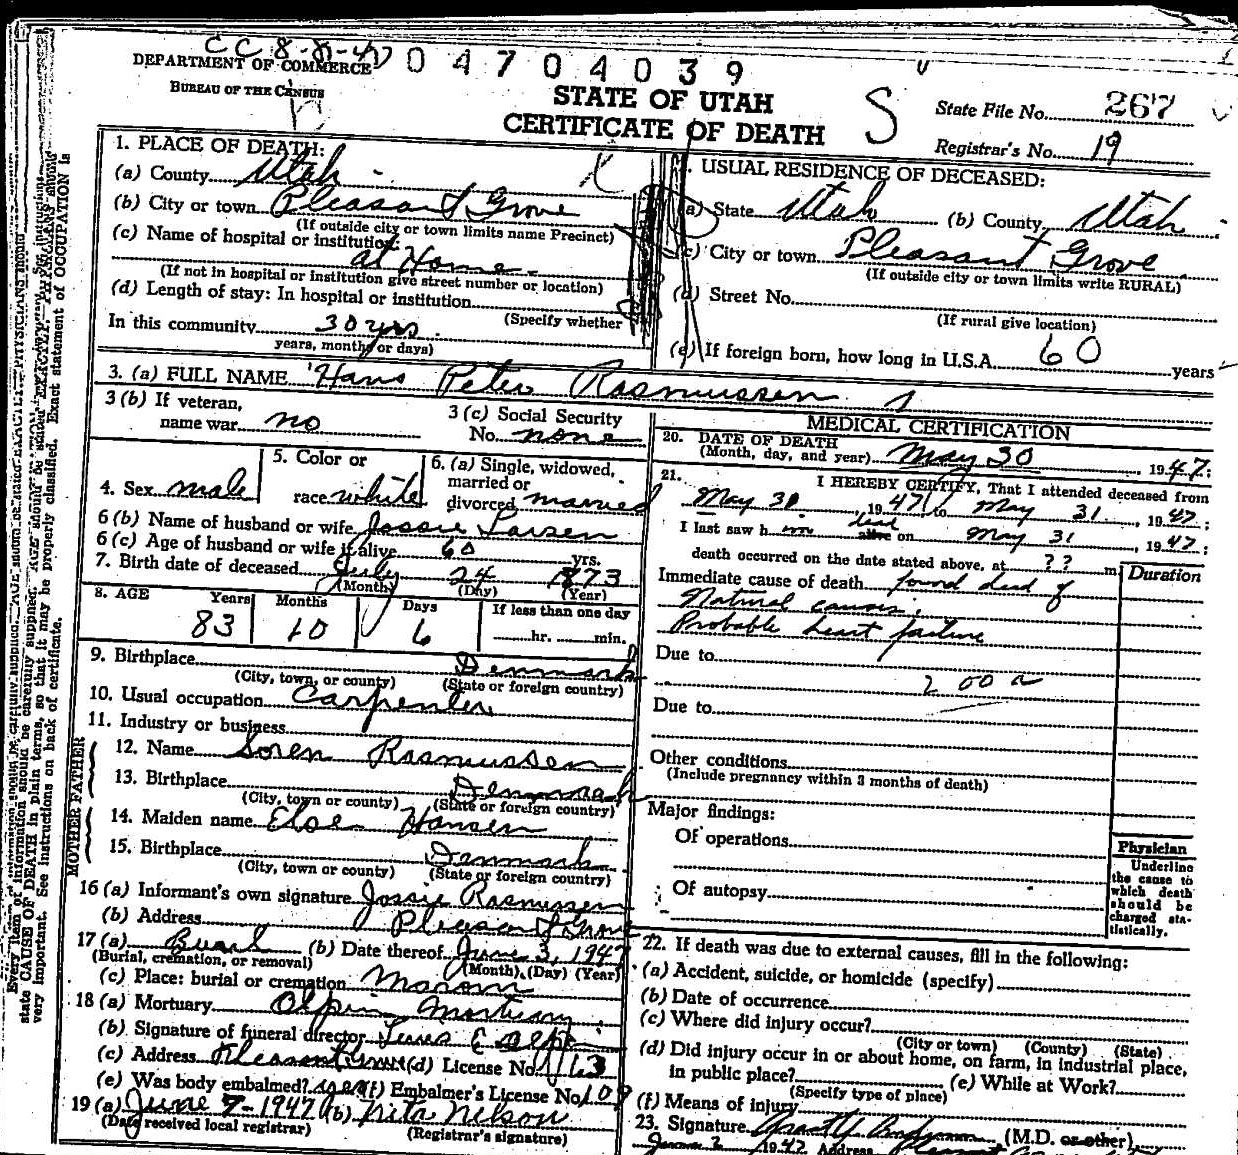 CC 8-8-47
04704039
DEPARTMENT OF COMMERCE
BUREAU OF THE CENSUS
STATE OF UTAH
CERTIFICATE OF DEATH
S
State File No. 267
Registrar's No. 19
1. PLACE OF DEATH:
(a) County Utah
(b) City or town Pleasant Grove
(If outside city or town limits name Precinct)
(c) Name of hospital or institution:
at Home
(If not in hospital or institution give street number or location)
(d) Length of stay: In hospital or institution
(Specify whether
In this community 30 yrs.
years, months or days)
USUAL RESIDENCE OF DECEASED:
(a) State Utah (b) County Utah
(c) City or town Pleasant Grove
(If outside city or town limits write RURAL)
(d) Street No.
(If rural give location)
(e) If foreign born, how long in U.S.A. 60 years
3. (a) FULL NAME Hans Peter Rasmussen
3 (b) If veteran,
name war no
3 (c) Social Security
No. none
4. Sex male
5. Color or
race white
6. (a) Single, widowed,
married or
divorced married
6 (b) Name of husband or wife Jossie Larsen
6 (c) Age of husband or wife if alive 60 yrs.
7. Birth date of deceased July 24 1873
(Month) (Day) (Year)
8. AGE Years Months Days If less than one day
83 10 6 hr. min.
9. Birthplace Denmark
(City, town, or county) (State or foreign country)
10. Usual occupation Carpenter
11. Industry or business
FATHER
12. Name Soren Rasmussen
13. Birthplace Denmark
(City, town or county) (State or foreign country)
MOTHER
14. Maiden name Else Hansen
15. Birthplace Denmark
(City, town or county) (State or foreign country)
16 (a) Informant's own signature Jossie Rasmussen
(b) Address Pleasant Grove
17 (a) Burial (b) Date thereof June 3, 1947
(Burial, cremation, or removal) (Month) (Day) (Year)
(c) Place: burial or cremation
18 (a) Mortuary Olpin Mortuary
(b) Signature of funeral director
(c) Address Pleasant Grove (d) License No. 163
(e) Was body embalmed? yes (f) Embalmer's License No. 109
19 (a) June 7-1947 (b) Nelson
(Date received local registrar) (Registrar's signature)
MEDICAL CERTIFICATION
20. DATE OF DEATH
(Month, day, and year) May 30, 1947;
21. I HEREBY CERTIFY, That I attended deceased from
May 30, 1947 to May 31, 1947;
I last saw him dead alive on May 31, 1947;
death occurred on the date stated above, at ?? m
Duration
Immediate cause of death found dead of
Natural causes.
Probable heart failure
Due to
200 a
Due to
Other conditions
(Include pregnancy within 3 months of death)
Major findings:
Of operations
Of autopsy
Physician
Underline
the cause to
which death
should be
charged sta-
tistically.
22. If death was due to external causes, fill in the following:
(a) Accident, suicide, or homicide (specify)
(b) Date of occurrence
(c) Where did injury occur?
(City or town) (County) (State)
(d) Did injury occur in or about home, on farm, in industrial place,
in public place? (e) While at Work?
(Specify type of place)
(f) Means of injury
23. Signature (M.D. or other)
June 2 1947 Address
state CAUSE OF DEATH in plain terms, so that it may be properly classified. Exact statement of OCCUPATION is
very important. See instructions on back of certificate.